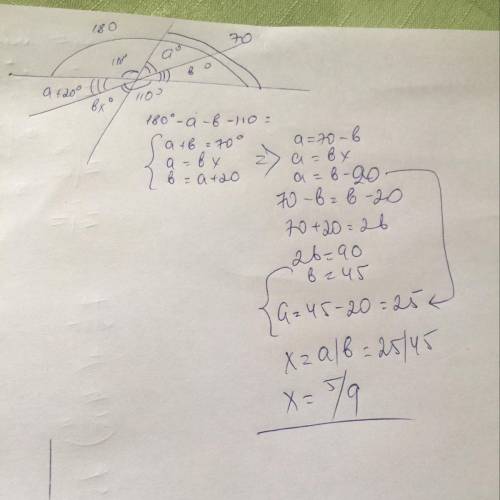 180
70
110°
a°
b°
a+20°
bx°
110°
180°-a-b-110=
a+b=70°
a=bx
b=a+20
=>
a=70-b
a=bx
a=b-20
70-b=b-20
70+20=2b
2b=90
b=45
a=45-20=25
x=a/b=25/45
x=5/9